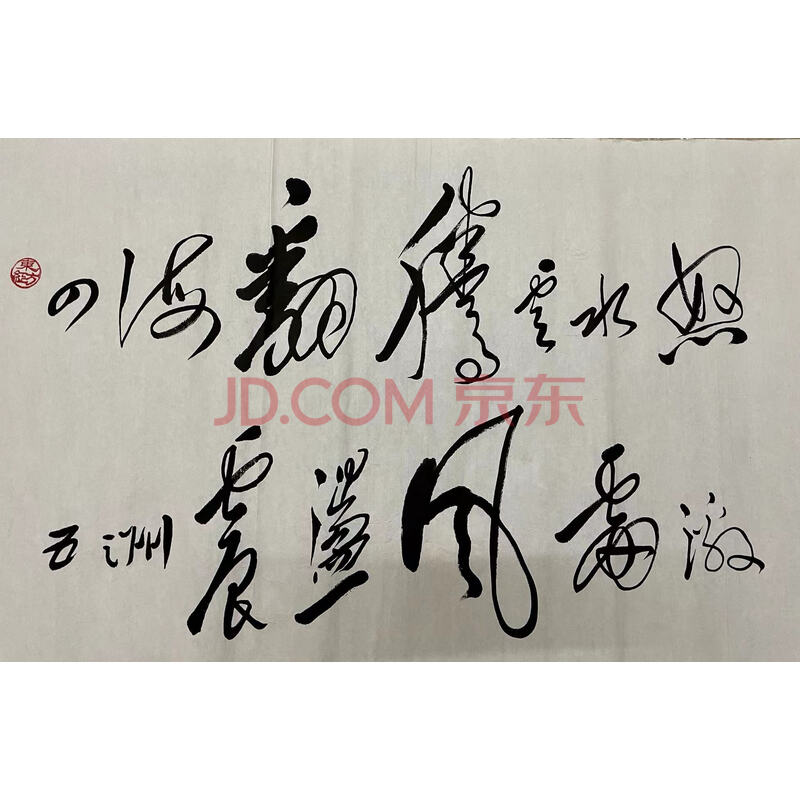 四海翻騰云水怒
JD.COM 京东
五洲震盪风雷激